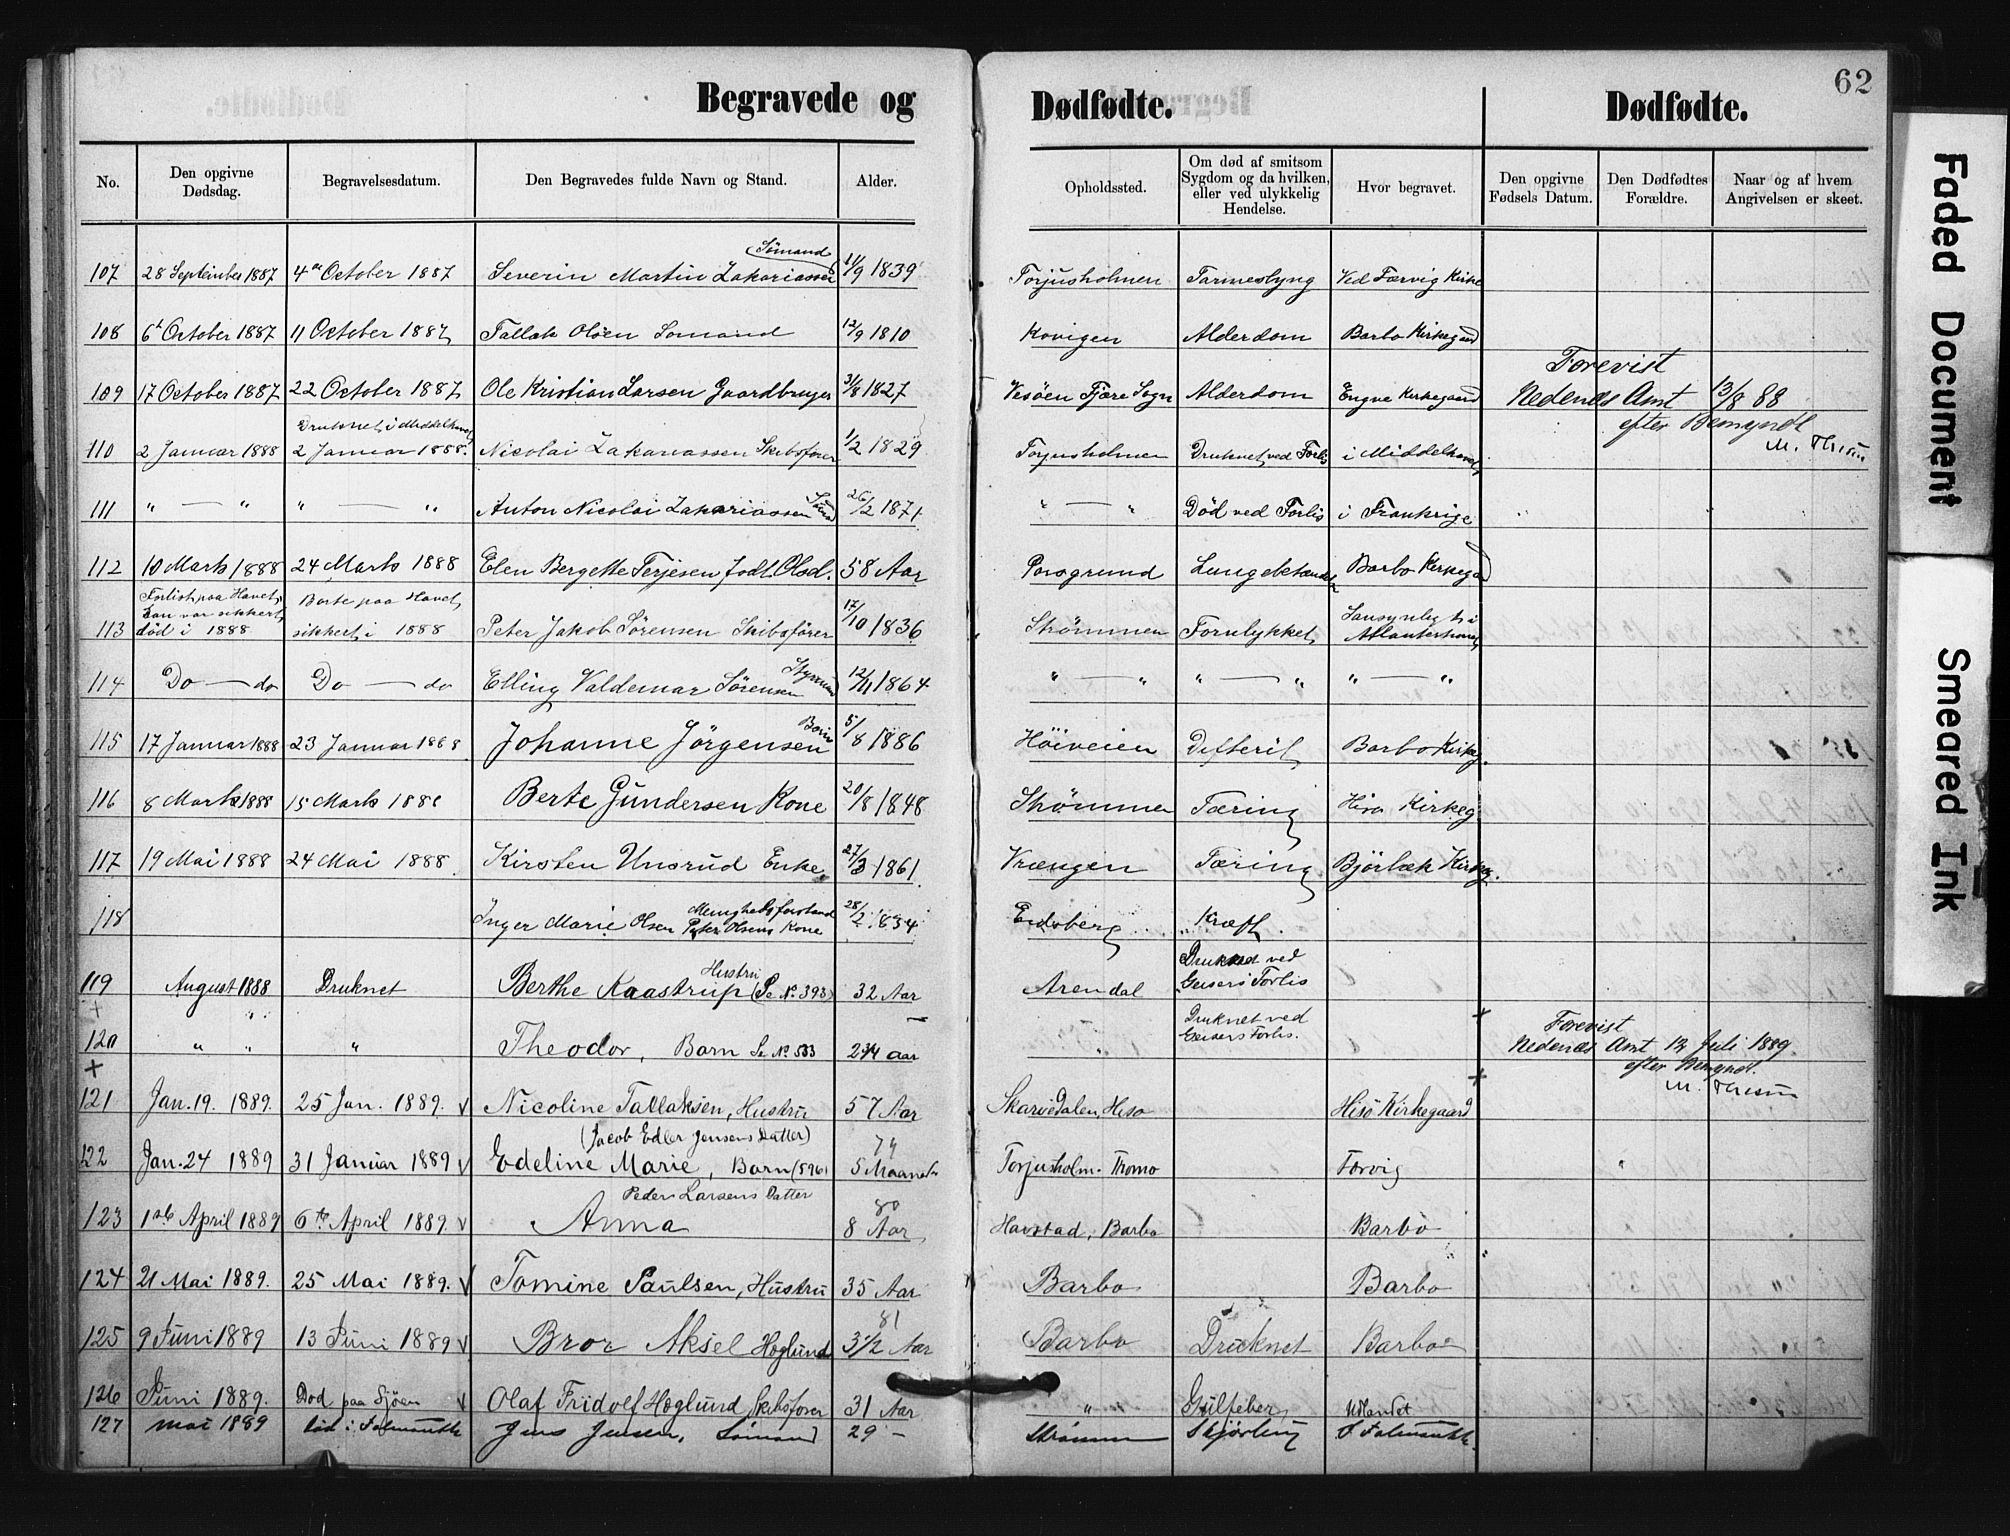 62
Begravede og Dødfødte. Dødfødte.
No. Den opgivne Dødsdag. Begravelsesdatum. Den Begravedes fulde Navn og Stand. Alder. Opholdssted. Om død af smitsom Sygdom og da hvilken, eller ved ulykkelig Hendelse. Hvor begravet. Den opgivne Fødsels Datum. Den Dødfødtes Forældre. Naar og af hvem Angivelsen er skeet.
107 28 September 1887 4 October 1887 Severin Martin Zakariassen Sömand 11/9 1839 Torjusholmen Tarmeslyng Ved Færvig Kirke
108 6 October 1887 11 October 1887 Tallak Olsen Sömand 12/9 1810 Kovigen Alderdom Barbo Kirkegaard
Forevist
109 17 October 1887 22 October 1887 Ole Kristian Larsen Gaardbruger 31/8 1827 Vesöen Fjære Sogn Alderdom Engne Kirkegaard Nedenæs Amt 13/8 88
efter Bemyndl
M. Thesen
110 2 Januar 1888 Druknet i Middelhavet 2 Januar 1888. Nicolai Zakariassen Skibsförer 1/2 1829 Torjusholmen Druknet ved Forlis i Middelhavet
111 " — " " — " Anton Nicolai Zakariassen Sömand 26/2 1871 " — " Död ved Forlis i Frankrige
112 10 Marts 1888 24 Marts 1888 Elen Bergette Terjesen födt Olsd. 58 Aar Porsgrund Lungebetændel Barbo Kirkegaard
113 Forlist paa Havet, han var sikkert död i 1888 Borte paa Havet, sikkert i 1888 Peter Jakob Sörensen Skibsförer 17/10 1836 Strömmen Forulykket Sansynlegts i Atlanterhavet
114 Do — do Do — do Elling Valdemar Sörensen Styrmand 12/11 1864 " — " " — " " — "
115 17 Januar 1888 23 Januar 1888 Johanne Jörgensen Barn 5/8 1886 Höiveien Defterit Barbo Kirkeg.
116 8 Marts 1888 15 Marts 1888 Berte Gundersen Kone 20/8 1848 Strömmen Tæring Hisö Kirkeg.
117 19 Mai 1888 24 Mai 1888 Kirsten Unsrud Enke 27/3 1861. Vrængen Tæring Björbæk Kirkeg.
118 Inger Marie Olsen Menighedsforstand Peter Olsens Kone 28/2 1834 Eidsberg Kræft
119 August 1888 Druknet Berthe Kaastrup Hustru (Se No. 398) 32 Aar Arendal Druknet ved Geisers Forlis
+
120 " " " Theodor, Barn Se No 533 2 3/4 aar " Druknet ved Geisers Forlis. +
Forevist
Nedenæs Amt 13 Juli 1889.
efter Bemyndl.
M. Thesen
+ +
121 Jan. 19. 1889. 25 Jan. 1889. √ Nicoline Tallaksen, Hustru 57 Aar Skarvedalen, Hisö Hisö Kirkegaard
122 Jan. 24 1889 31 Januar 1889 √ (Jacob Edler Jensens Datter) Edeline Marie, Barn (596) 79 5 Maaneder Torjusholm. Tromö Færvig
123 1ste April 1889 6te April 1889. √ Peder Larsens Datter Anna 80 8 Aar Havstad, Barbo Barbo
124 21 Mai 1889. 25 Mai 1889. √ Tomine Paulsen, Hustru 35 Aar Barbo Barbo
125 9 Juni 1889 13 Juni 1889 √ Bror Aksel Höglund 81 3 1/2 Aar Barbo Druknet Barbo
126 Juni 1889. Död paa Sjöen √ Olaf Fridolf Höglund Skibsförer 31 Aar " " Gulfeber Udlandet
127 Mai 1889 död i Falmouth Jens Jensen, Sömand 29 – Strömmen Skjörbug i Falmouth.
Faded Document
Smeared Ink